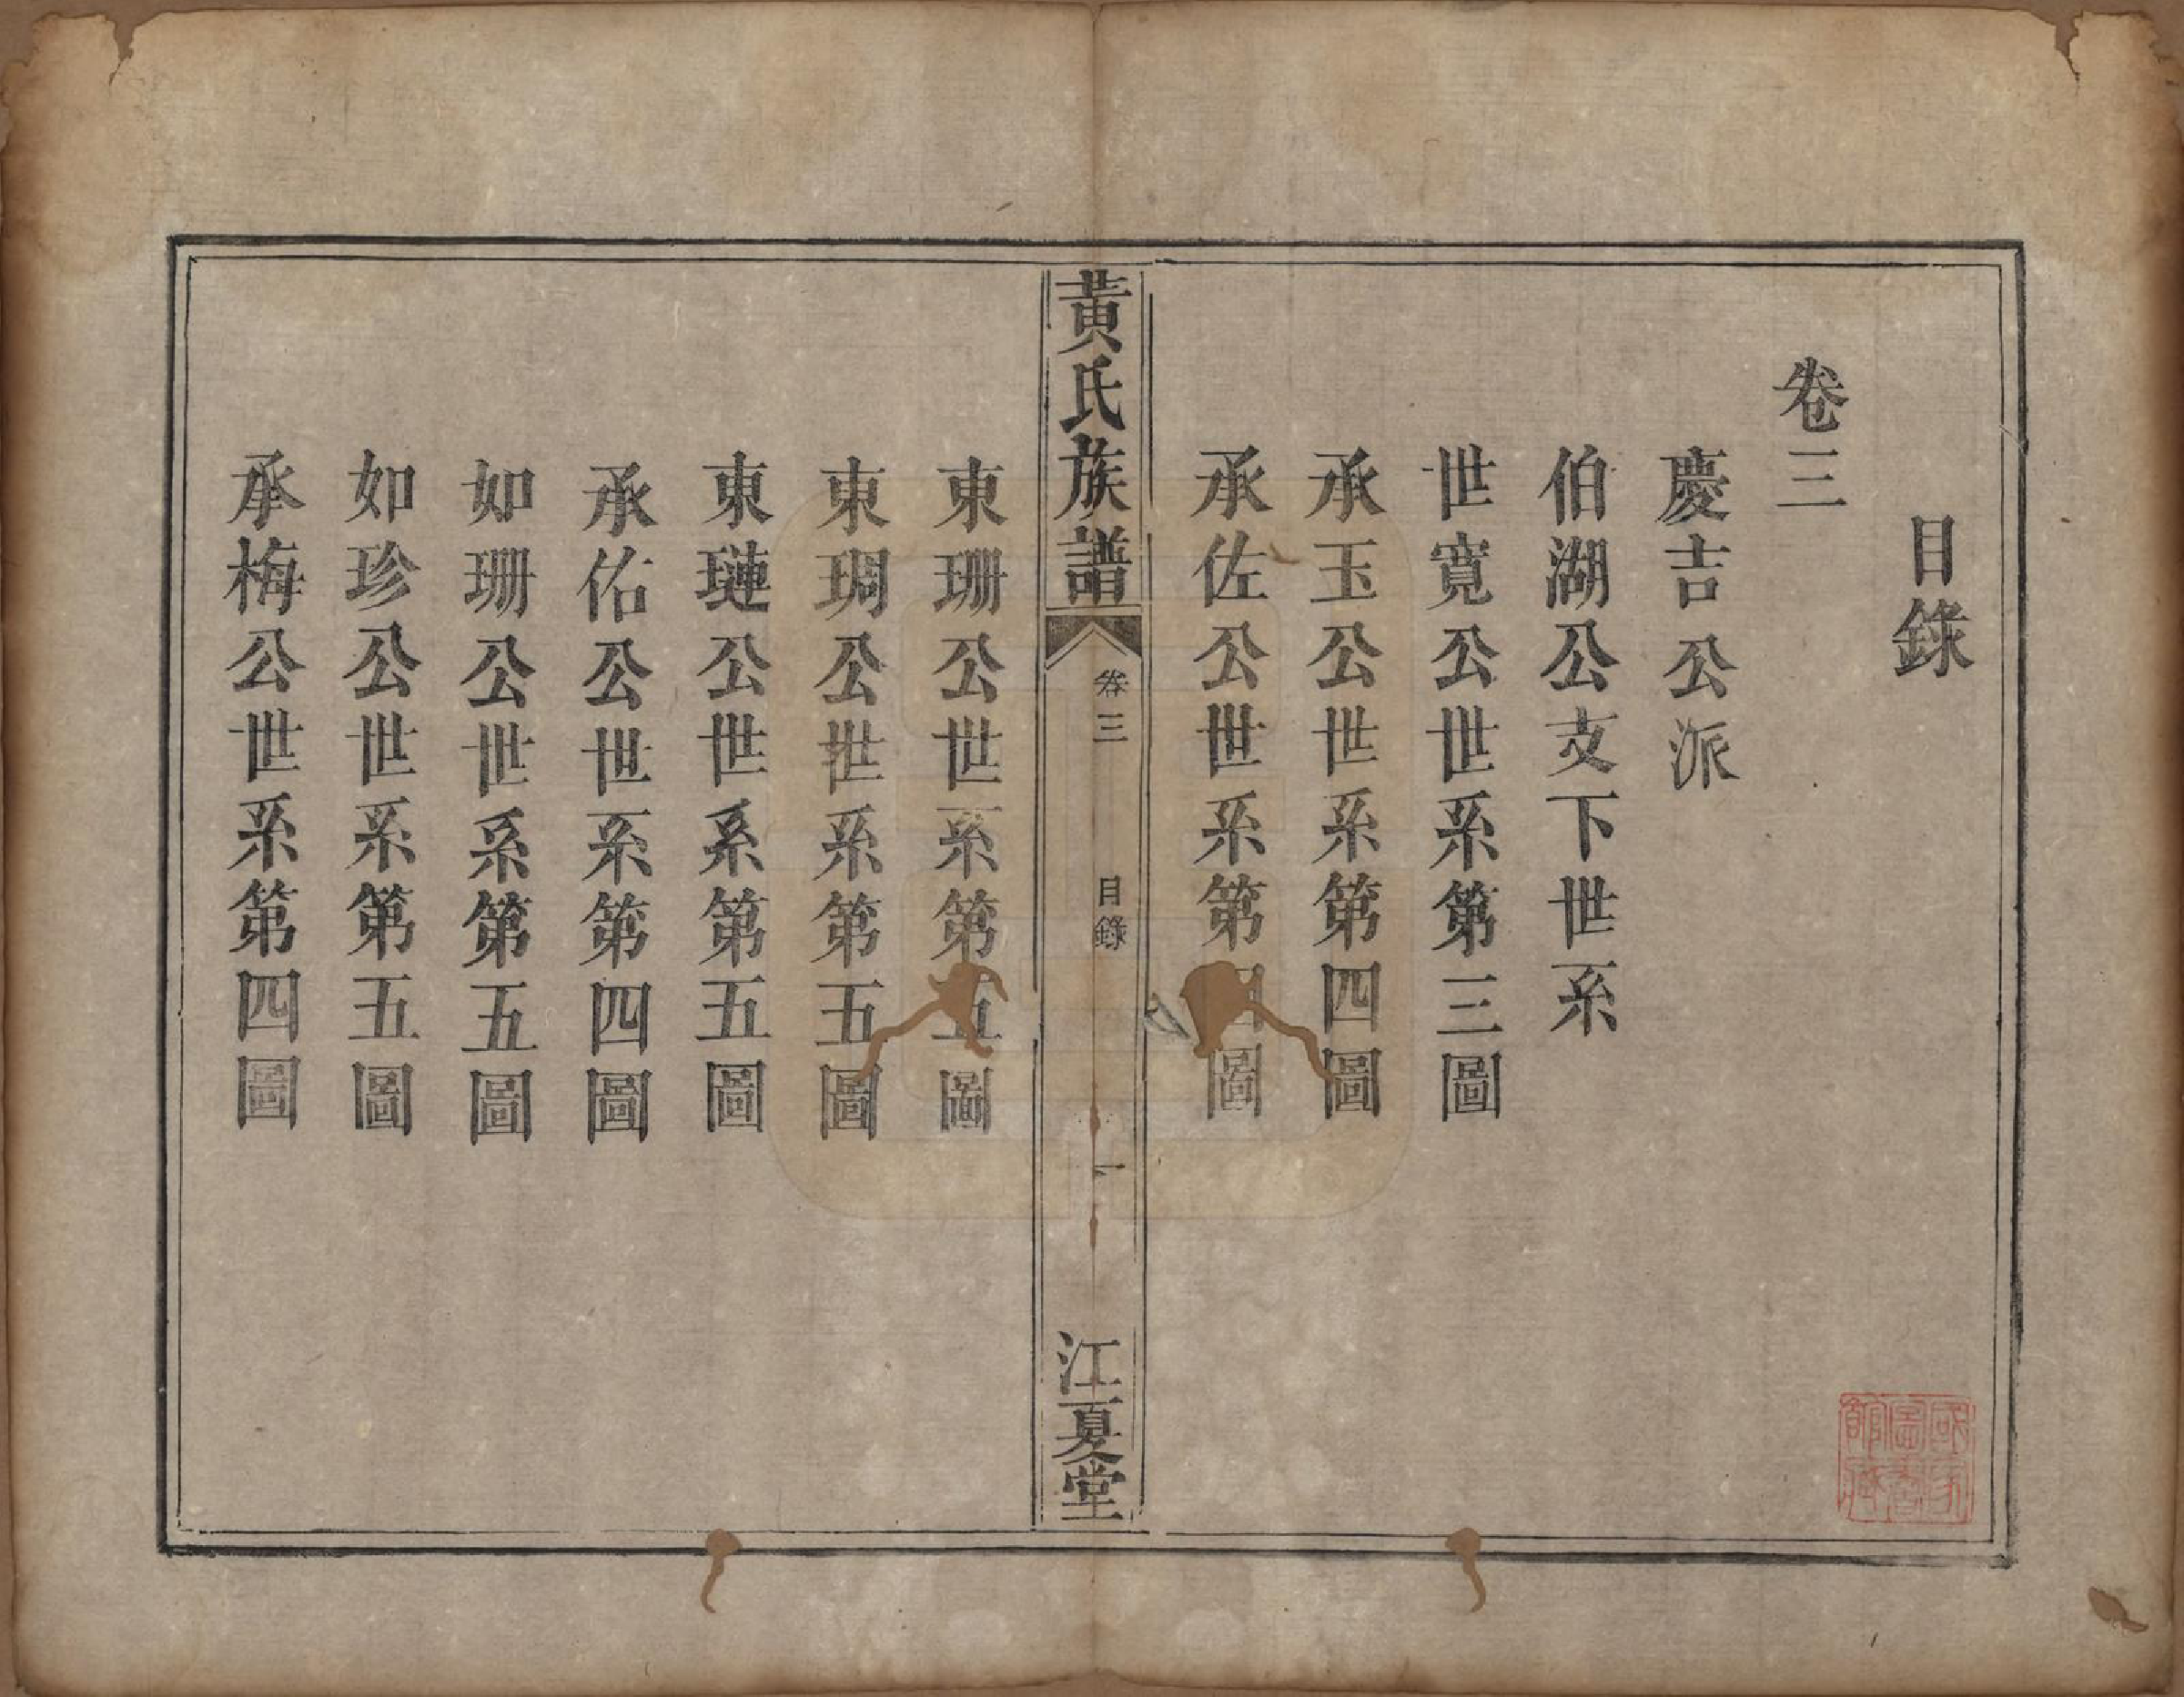 目錄
卷三
慶吉公派
伯湖公支下世系
世寬公世系第三圖
承玉公世系第四圖
承佐公世系第四圖
黃氏族譜
卷三
目錄
一
江夏堂
東珊公世系第五圖
東琱公世系第五圖
東璉公世系第五圖
承佑公世系第四圖
如珊公世系第五圖
如珍公世系第五圖
承梅公世系第四圖
國家圖書館藏